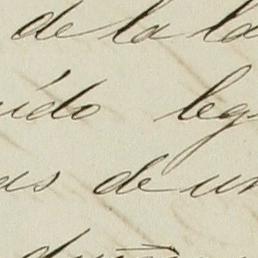 de la la
uido leg
as de un